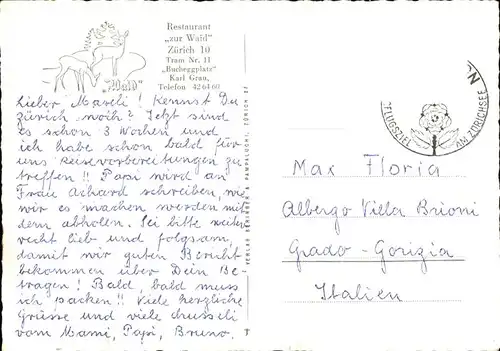 Restaurant
„zur Waid"
Zürich 10
Tram Nr. 11
„Bucheggplatz"
Karl Grau,
Telefon 42 64 60
„Waid"
Lieber Marcli! Kennst Du
Zürich noch? Jetzt sind
es schon 3 Wochen und
ich habe schon bald für
uns Reisevorbereitungen zu
treffen!! Papi wird an
Frau Achard schreiben, wie
wir es machen werden mit
dem abholen. Sei bitte weiter
recht lieb und folgsam,
damit wir guten Bericht
bekommen über Dein Be-
tragen! Bald, bald muss
ich packen!! Viele herzliche
Grüsse und viele
vom Mami, Papi, Bruno.
VERLAG
ZÜRICH
AUSFLUGSZIEL
AM ZÜRICHSEE
Max Floria
Albergo Villa Brioni
Grado - Gorizia
Italien